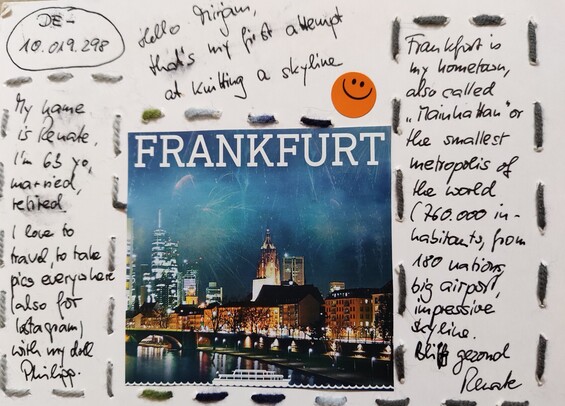 DE-
10.019.298
Hello Mirjam,
that's my first attempt
at knitting a skyline
My name
is Renate,
I'm 63 yo,
married,
retired.
I love to
travel, to take
pics everywhere
(also for
Instagram)
with my doll
Philipp.
FRANKFURT
Frankfurt is
my hometown,
also called
„Mainhattan" or
the smallest
metropolis of
the world
(760.000 in-
habitants, from
180 nations,
big airport,
impressive
skyline.
gezond
Renate